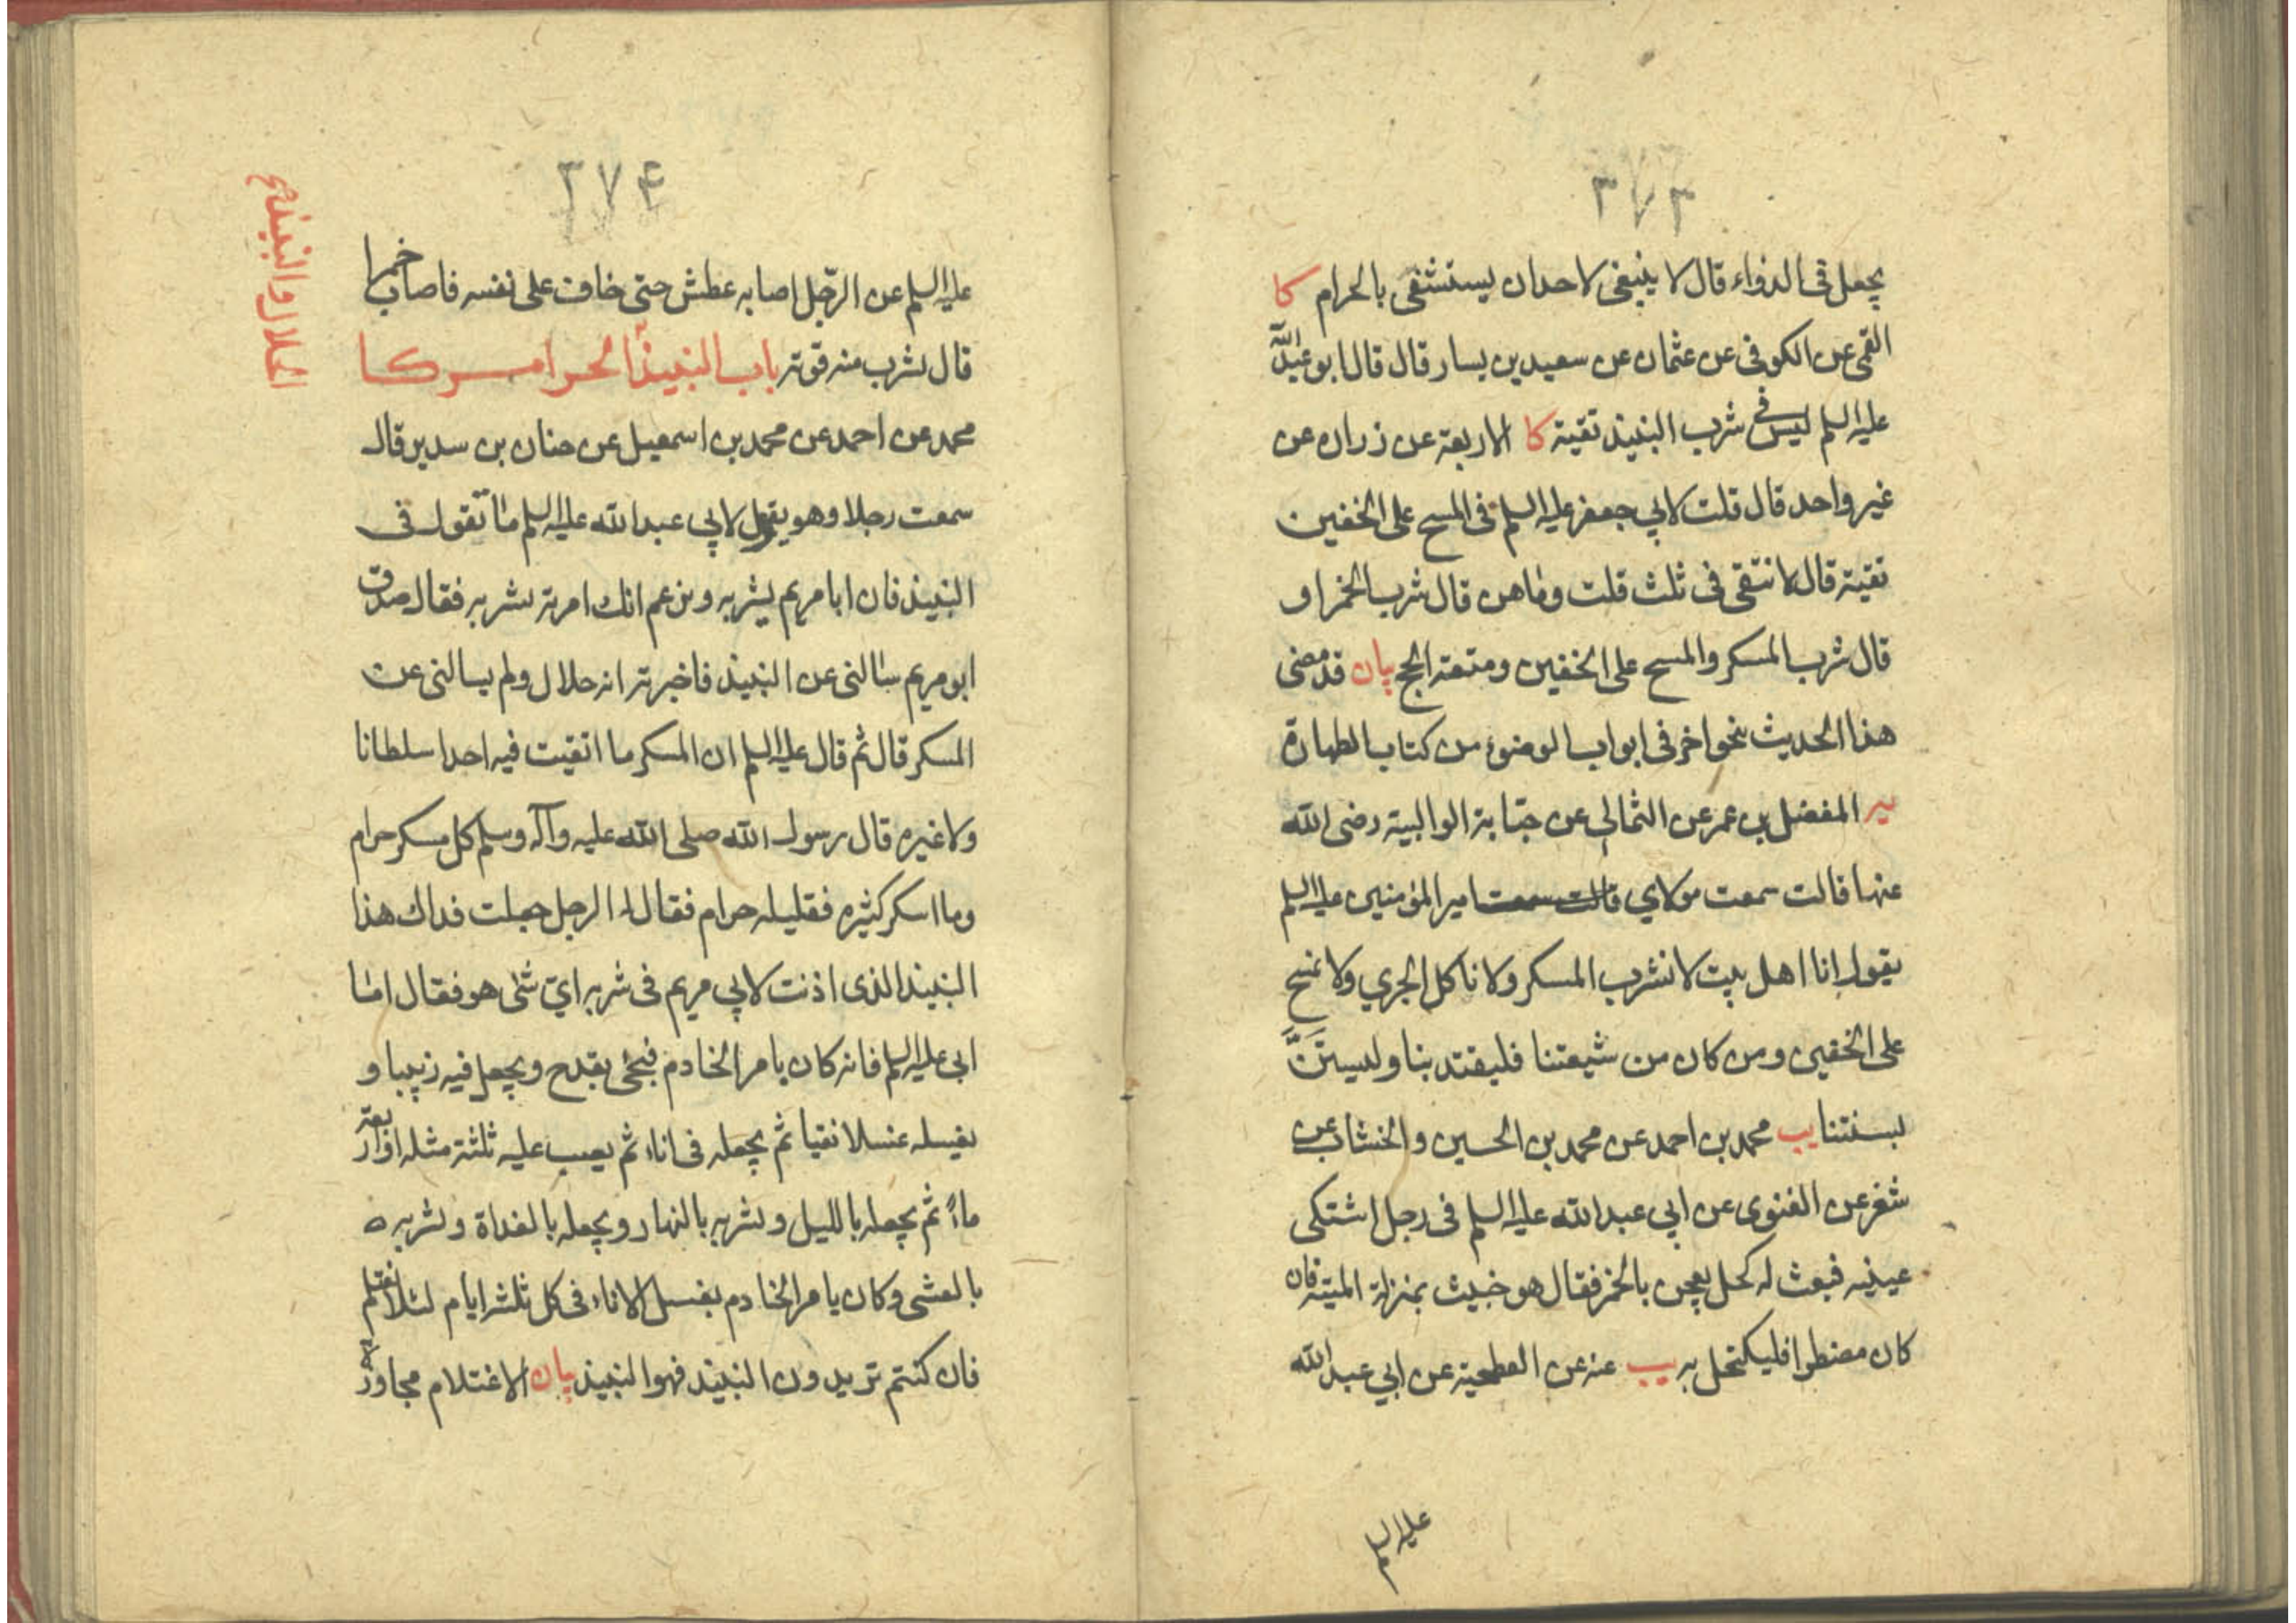 ٣٧٣
يجعل فى الدواء قال لا ينبغى لاحد ان يستشفى بالحرام كا
القمى عن الكوفى عن عثمان عن سعيد بن يسار قال قال ابو عبد الله
عليه السلم ليس فى شرب النبيذ تقية كا الاربعة عن زرارة عن
غير واحد قال قلت لابي جعفر عليه السلم فى المسح على الخفين
تقية قال لا نتقى فى ثلث قلت وما هن قال شرب الخمر او
قال شرب المسكر والمسح على الخفين ومتعة الحج بيان قد مضى
هذا الحديث بنحو اخر فى ابواب الوضوء من كتاب الطهارة
يه المفضل بن عمر عن الثمالي عن حبابة الوالبية رضى الله
عنها قالت سمعت مولاي قالت سمعت امير المؤمنين عليه السلم
يقول إنا اهل بيت لا نشرب المسكر ولا ناكل الجري ولا نمسح
على الخفين ومن كان من شيعتنا فليقتد بنا وليستنَّ
بسنتنا يب محمد بن احمد عن محمد بن الحسين والخشاب عن
شغر عن الغنوى عن ابي عبد الله عليه السلم فى رجل اشتكى
عينيه فبعث له كحل يعجن بالخمر فقال هو خبيث بمنزلة الميتة فان
كان مضطرا فليكتحل به يب عنه عن الفطحية عن ابي عبد الله
عليه السلم
٣٧۴
الحلال والنبيذ
عليه السلم عن الرّجل اصابه عطش حتى خاف على نفسه فاصاب خمرا
قال يشرب منه قوته باب النبيذ الحرام كا
محمد عن احمد عن محمد بن اسمعيل عن حنان بن سدير قال
سمعت رجلا وهو يقول لابي عبد الله عليه السلم ما تقول فى
النبيذ فان ابا مريم يشربه ويزعم انك امرته بشربه فقال صدق
ابو مريم سالنى عن النبيذ فاخبرته انه حلال ولم يسالنى عن
المسكر قال ثم قال عليه السلم ان المسكر ما اتقيت فيه احدا سلطانا
ولا غيره قال رسول الله صلى الله عليه وآله وسلم كل مسكر حرام
وما اسكر كثيره فقليله حرام فقال له الرجل جعلت فداك هذا
النبيذ الذى اذنت لابي مريم فى شربه ايّ شئ هو فقال اما
ابى عليه السلم فانه كان يامر الخادم فيجئ بقدح ويجعل فيه زبيبا و
يغسله غسلا نقيا ثم يجعله فى اناء ثم يصب عليه ثلثة مثله او اربعة
ماءً ثم يجعله بالليل ويشربه بالنهار ويجعله بالغداة ويشربه
بالعشى وكان يامر الخادم بغسل الاناء فى كل ثلثة ايام لئلا يغتلم
فان كنتم تريدون النبيذ فهو النبيذ بيان الاغتلام مجاوزة